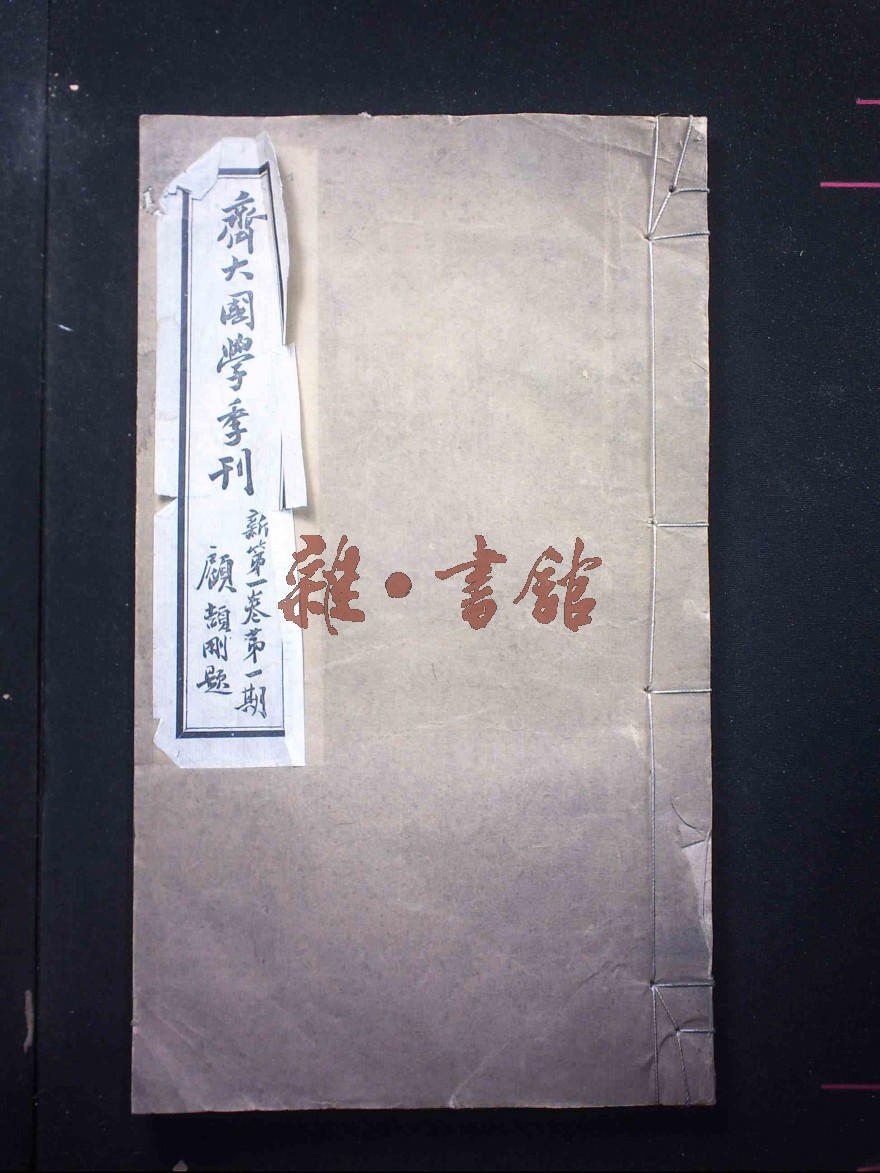 齊大國學季刊
新第一卷第一期
顧頡剛題
雜·書館